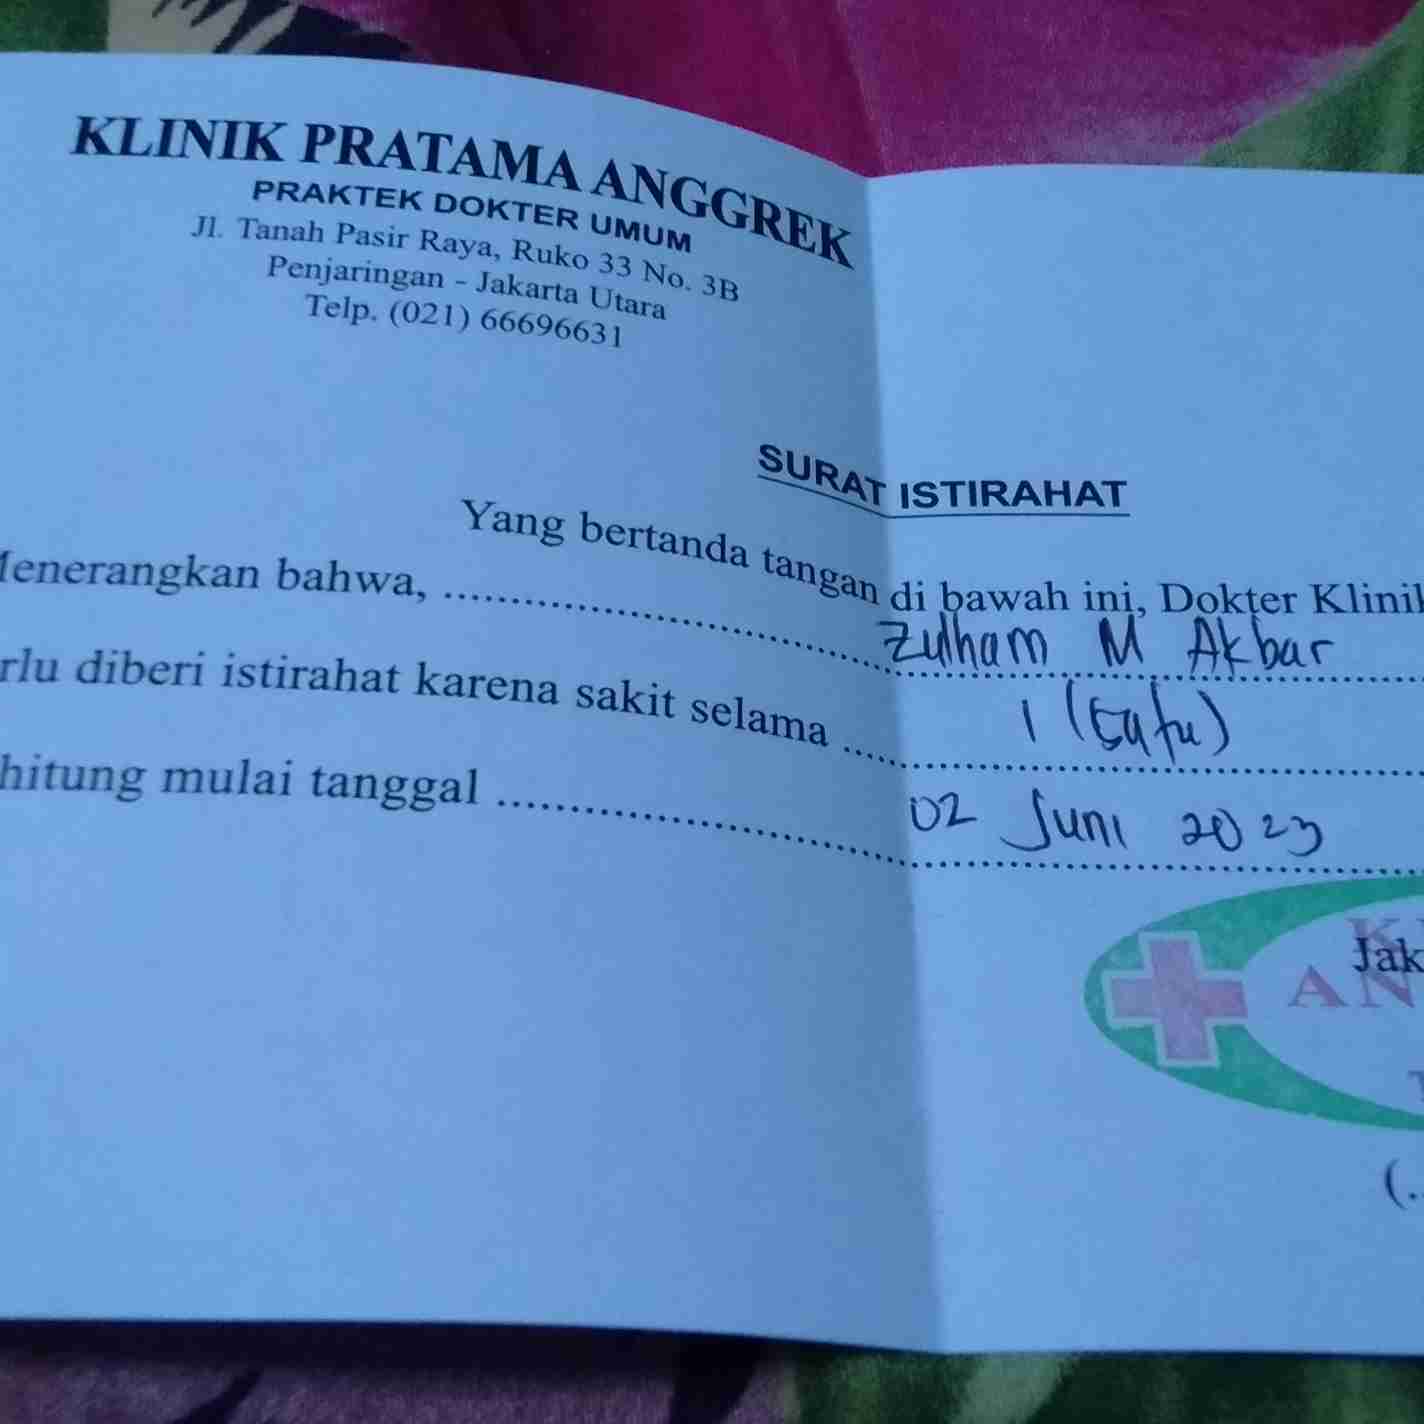 KLINIK PRATAMA ANGGREK
PRAKTEK DOKTER UMUM
Jl. Tanah Pasir Raya, Ruko 33 No. 3B
Penjaringan - Jakarta Utara
Telp. (021) 66696631
SURAT ISTIRAHAT
Yang bertanda tangan di bawah ini, Dokter Klinik
Menerangkan bahwa, Zulham M Akbar
rlu diberi istirahat karena sakit selama 1 (satu)
hitung mulai tanggal 02 Juni 2023
Jak
AN
(..